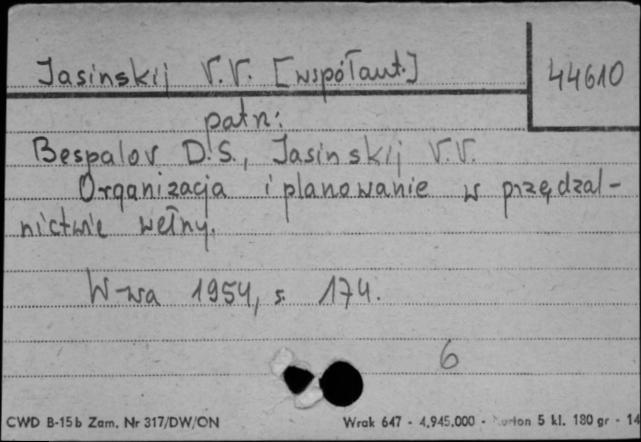 Jasinskij V.V. [współaut.]
44610
patrz:
Bespalov D.S., Jasinskij V.V.
Organizacja i planowanie w przędzal-
nictwie wełny.
W-wa 1954, s. 174.
6
CWD B-15b Zam. Nr 317/DW/ON
Wrak 647 - 4.945.000 - 5 kl. 180 gr - 14